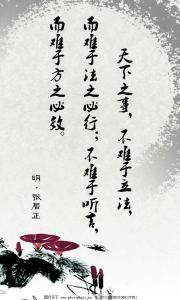 天下之事,不难于立法,
而难于法之必行;不难于听言,
而难于方之必效。
明·张居正